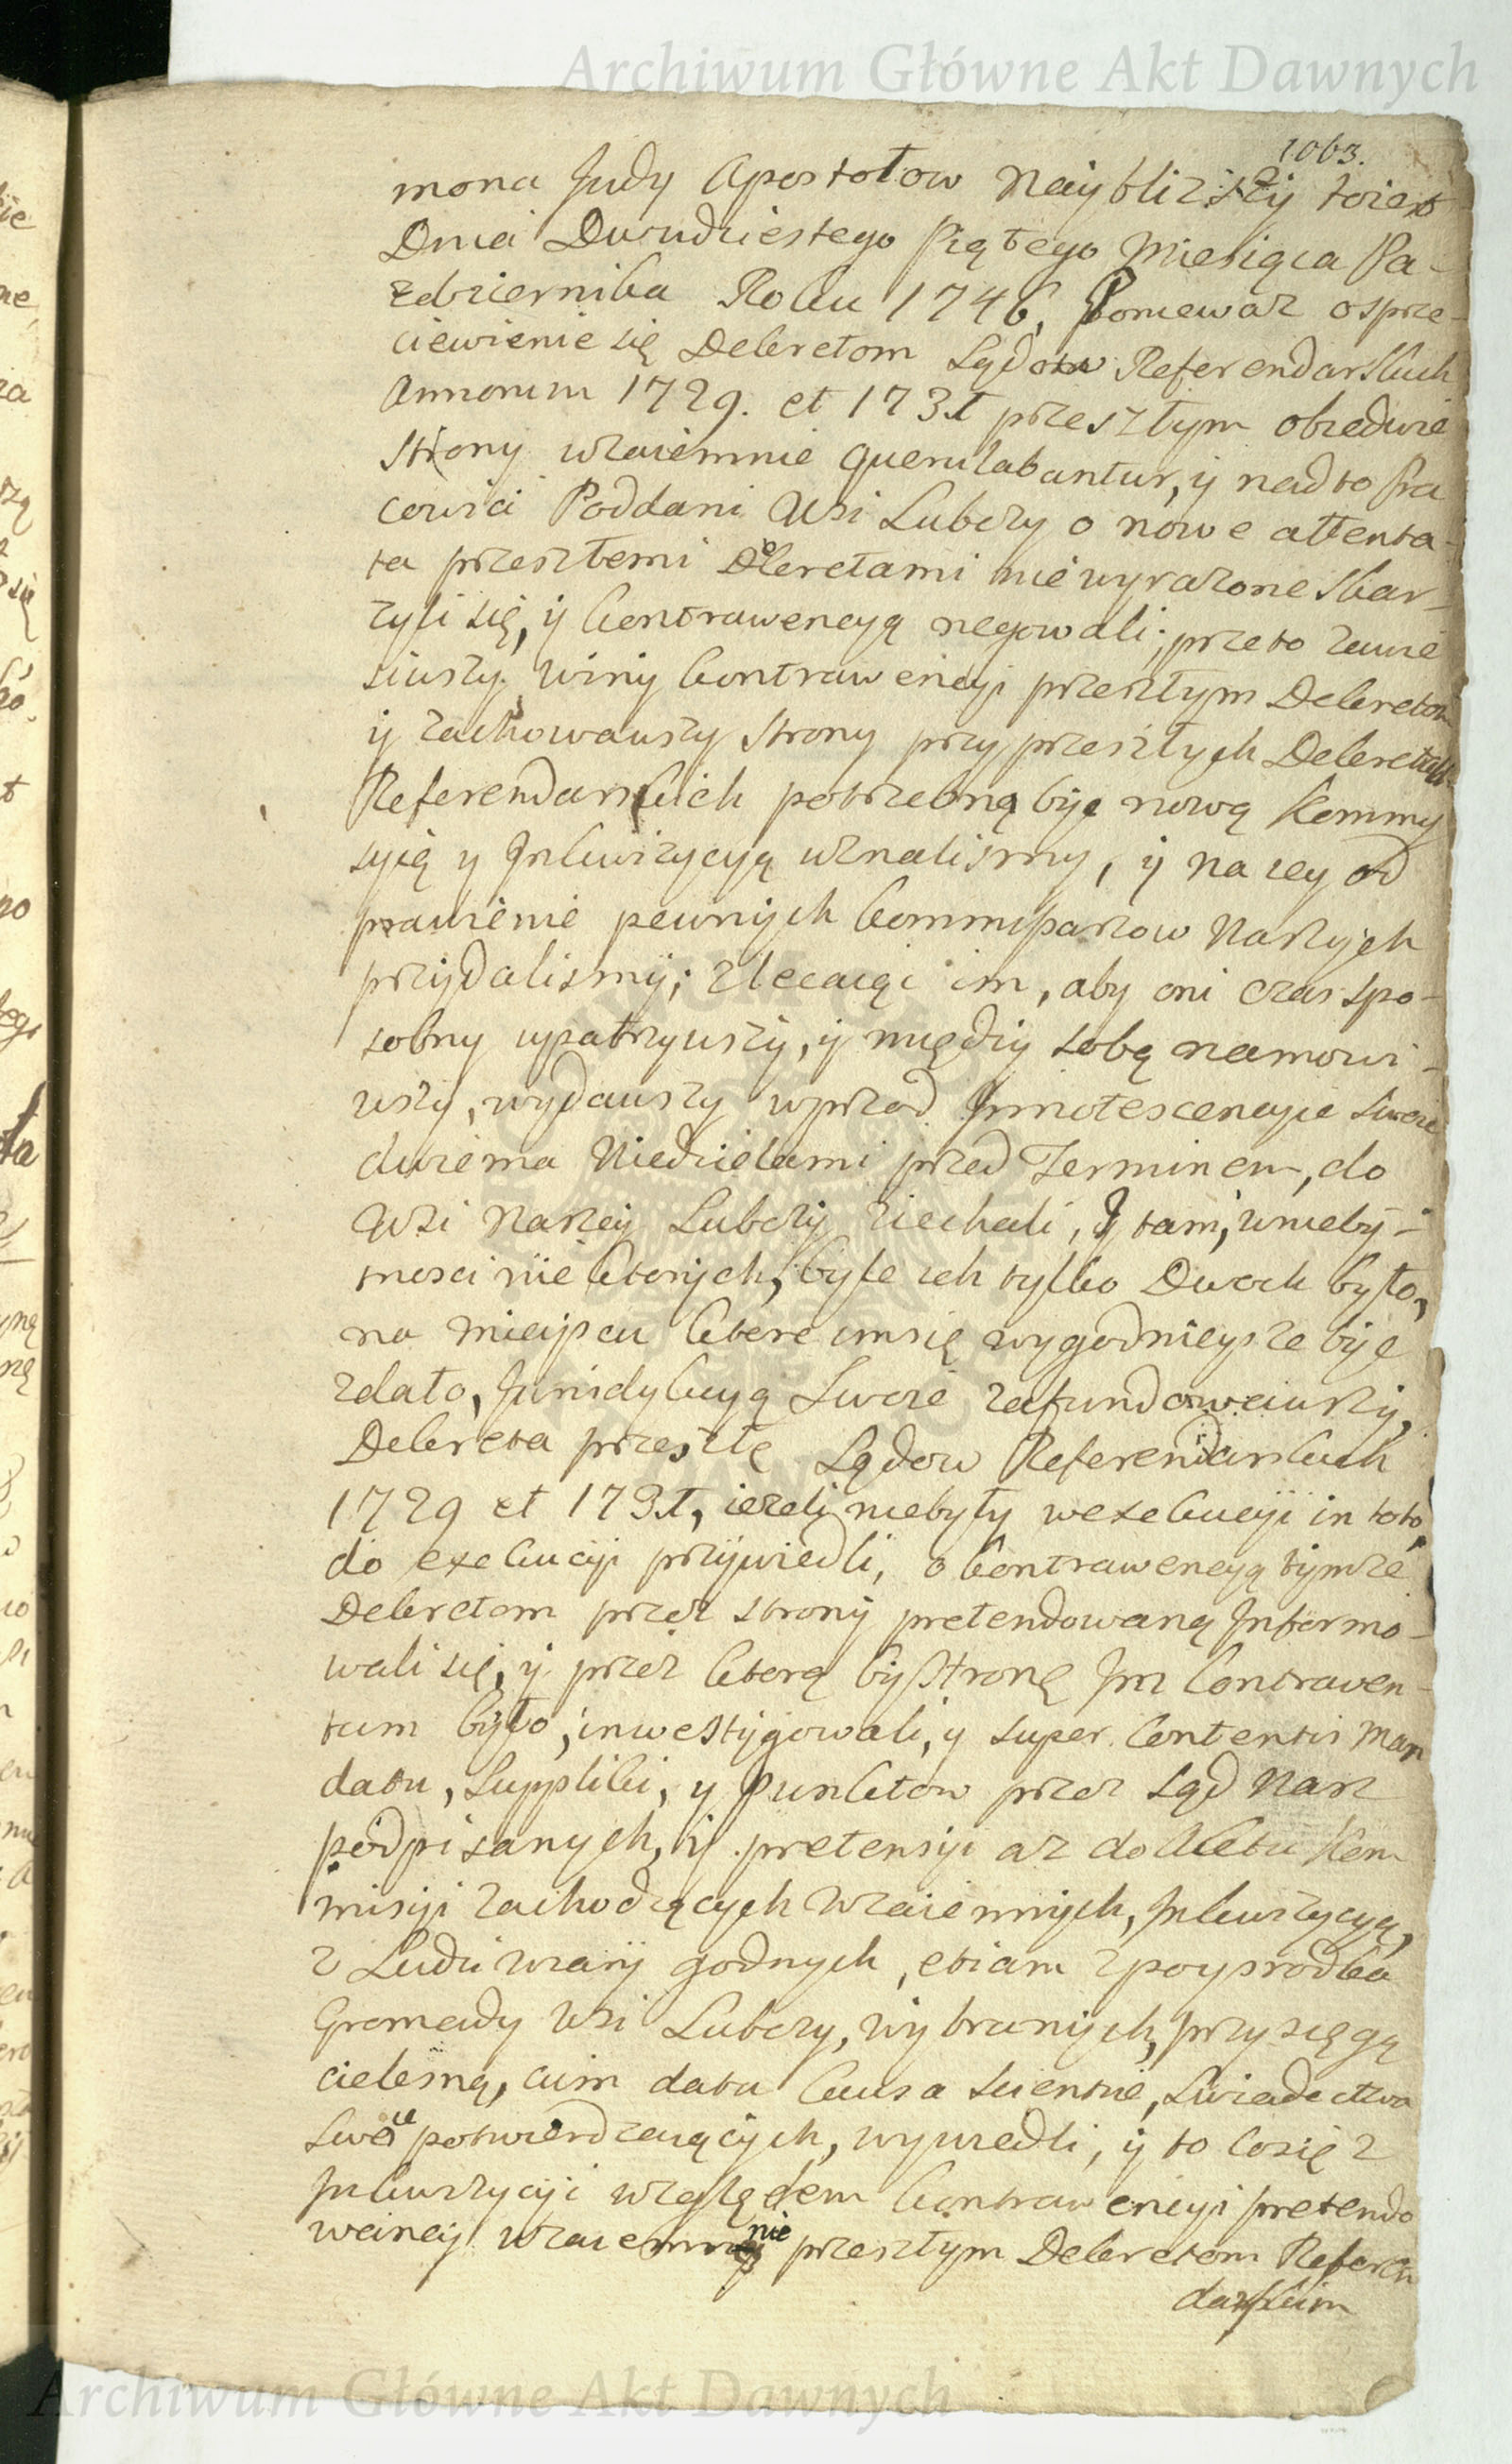 Archiwum Główne Akt Dawnych
1063.
mona Judy Apostołow Nayblizszy to iest
Dnia Dwudziestego Piątego Miesiąca Pa-
zdziernika Roku 1746, Poniewaz osprze-
ciewienie się Dekretom Sądow Referendarskich
Annorum 1729. et 1731 przeszłym obiedwie
Strony wzaiemnie querulabantur, y nadto Pra
cowici Poddani Wsi Lubczy o nowe attenta-
ta przeszłemi Dekretami nie wyrazone skar-
zyli się, y kontrawencyą negowali; przeto zawie
siwszy winy kontrawencyi przeszłym Dekretom
y zachowawszy Strony przy przeszłych Dekretach
Referendarskich potrzebną byc nową Kommi
syią y Inkwizycyą uznalismy, y na iey od
prawienie pewnych Kommissarzow Naszych
przydalismy; zlecaiąc im, aby oni czas spo-
sobny upatrzywszy, y między sobą namowi-
wszy, wydawszy wprzod Innotescencyie swoie
dwiema Niedzielami przed Terminem, do
Wsi Naszey Lubczy ziechali, y tam, w nieby-
tnosci niektorych, byle ich tylko Dwoch było,
na mieyscu ktore im się wygodnieysze byc
zdało, Jurisdykcyą Swoię zafundowawszy,
Dekreta przeszłe Sądow Referendarskich
1729 et 1731, iezeli niebyły w exekucyi in toto,
do exekucyi przywiedli, o kontrawencyą tymze
Dekretom przez strony pretendowaną Informo-
wali się, y przez ktorą by Stronę Im Contraven-
tum było, inwestygowali, y super Contentis Man
datu, Suppliki, y Punktow przez Sąd Nasz
podpisanych, y pretensyi az do Aktu Kom
misyi zachodzących wzaiemnych, Inkwizycyą,
z Ludzi wiary godnych, etiam z pospodka
Gromady Wsi Lubczy, wybranych, przysięgą
cielesną, cum data Causa Scientie, Swiadectwa
Swoie potwierdzaiących, wywiedli, y to co się z
Inkwizycyi względem kontrawencyi pretendo
waney wzaiemnie przeszłym Dekretom Referen
darskim
Archiwum Główne Akt Dawnych